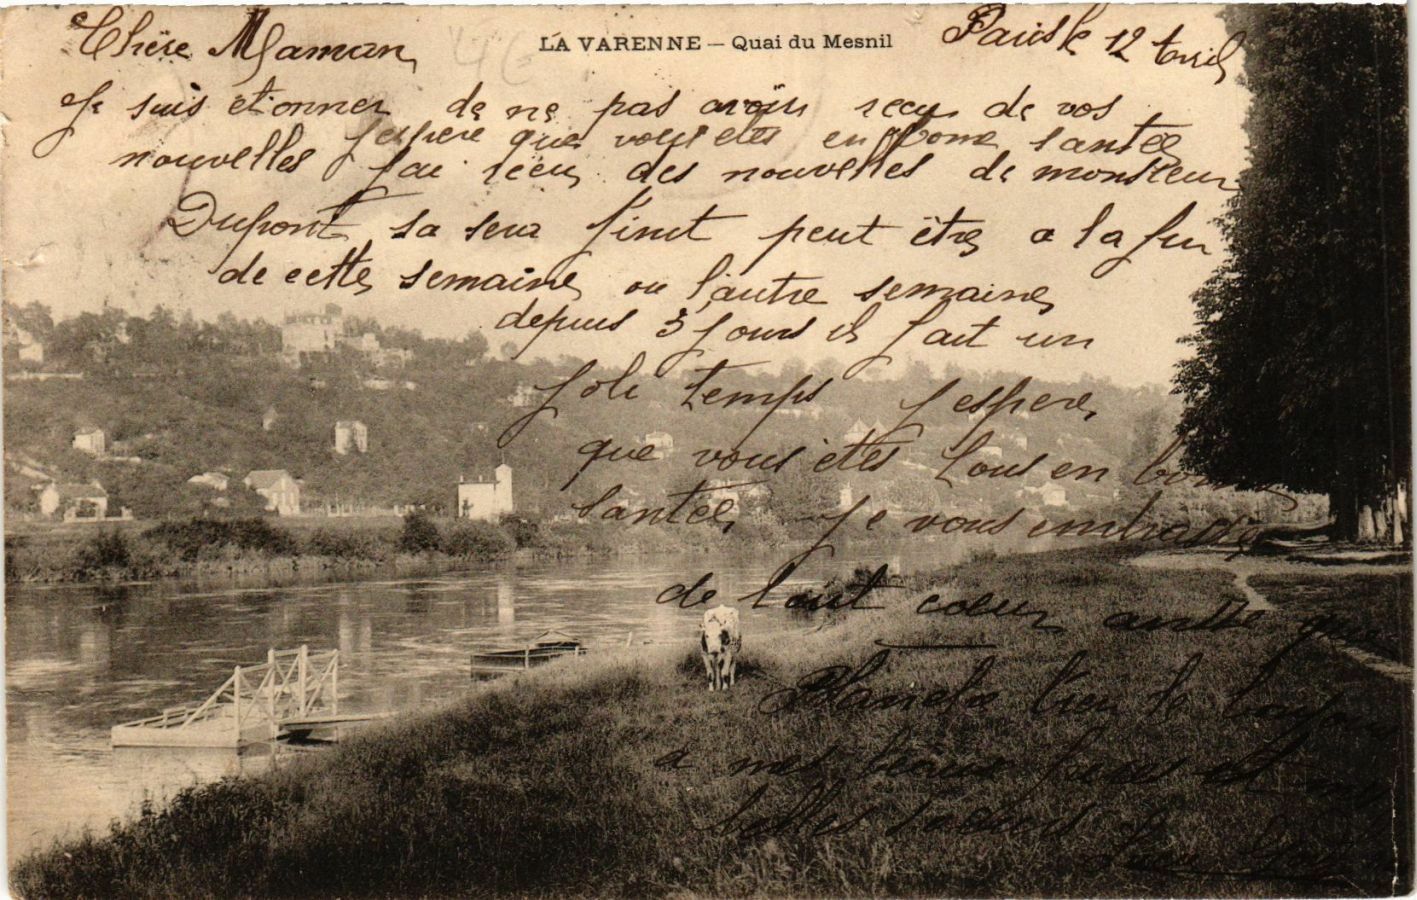 LA VARENNE — Quai du Mesnil
Paris le 12 Avril
Chère Maman
Je suis étionner de ne pas avoir recu de vos
nouvelles j'espere que vous etes en bonne santée
j'ai recu des nouvelles de monsieur
Dupont sa sera finit peut être a la fin
de cette semaine ou l'autre semaine
depuis 3 jours il fait un
joli temps j'espere
que vous êtes tous en bonne
santée Je vous embrasse
de tout cœur ainsi que
Blanche bien le bonjour
a mes beaux freres et
belles sœurs